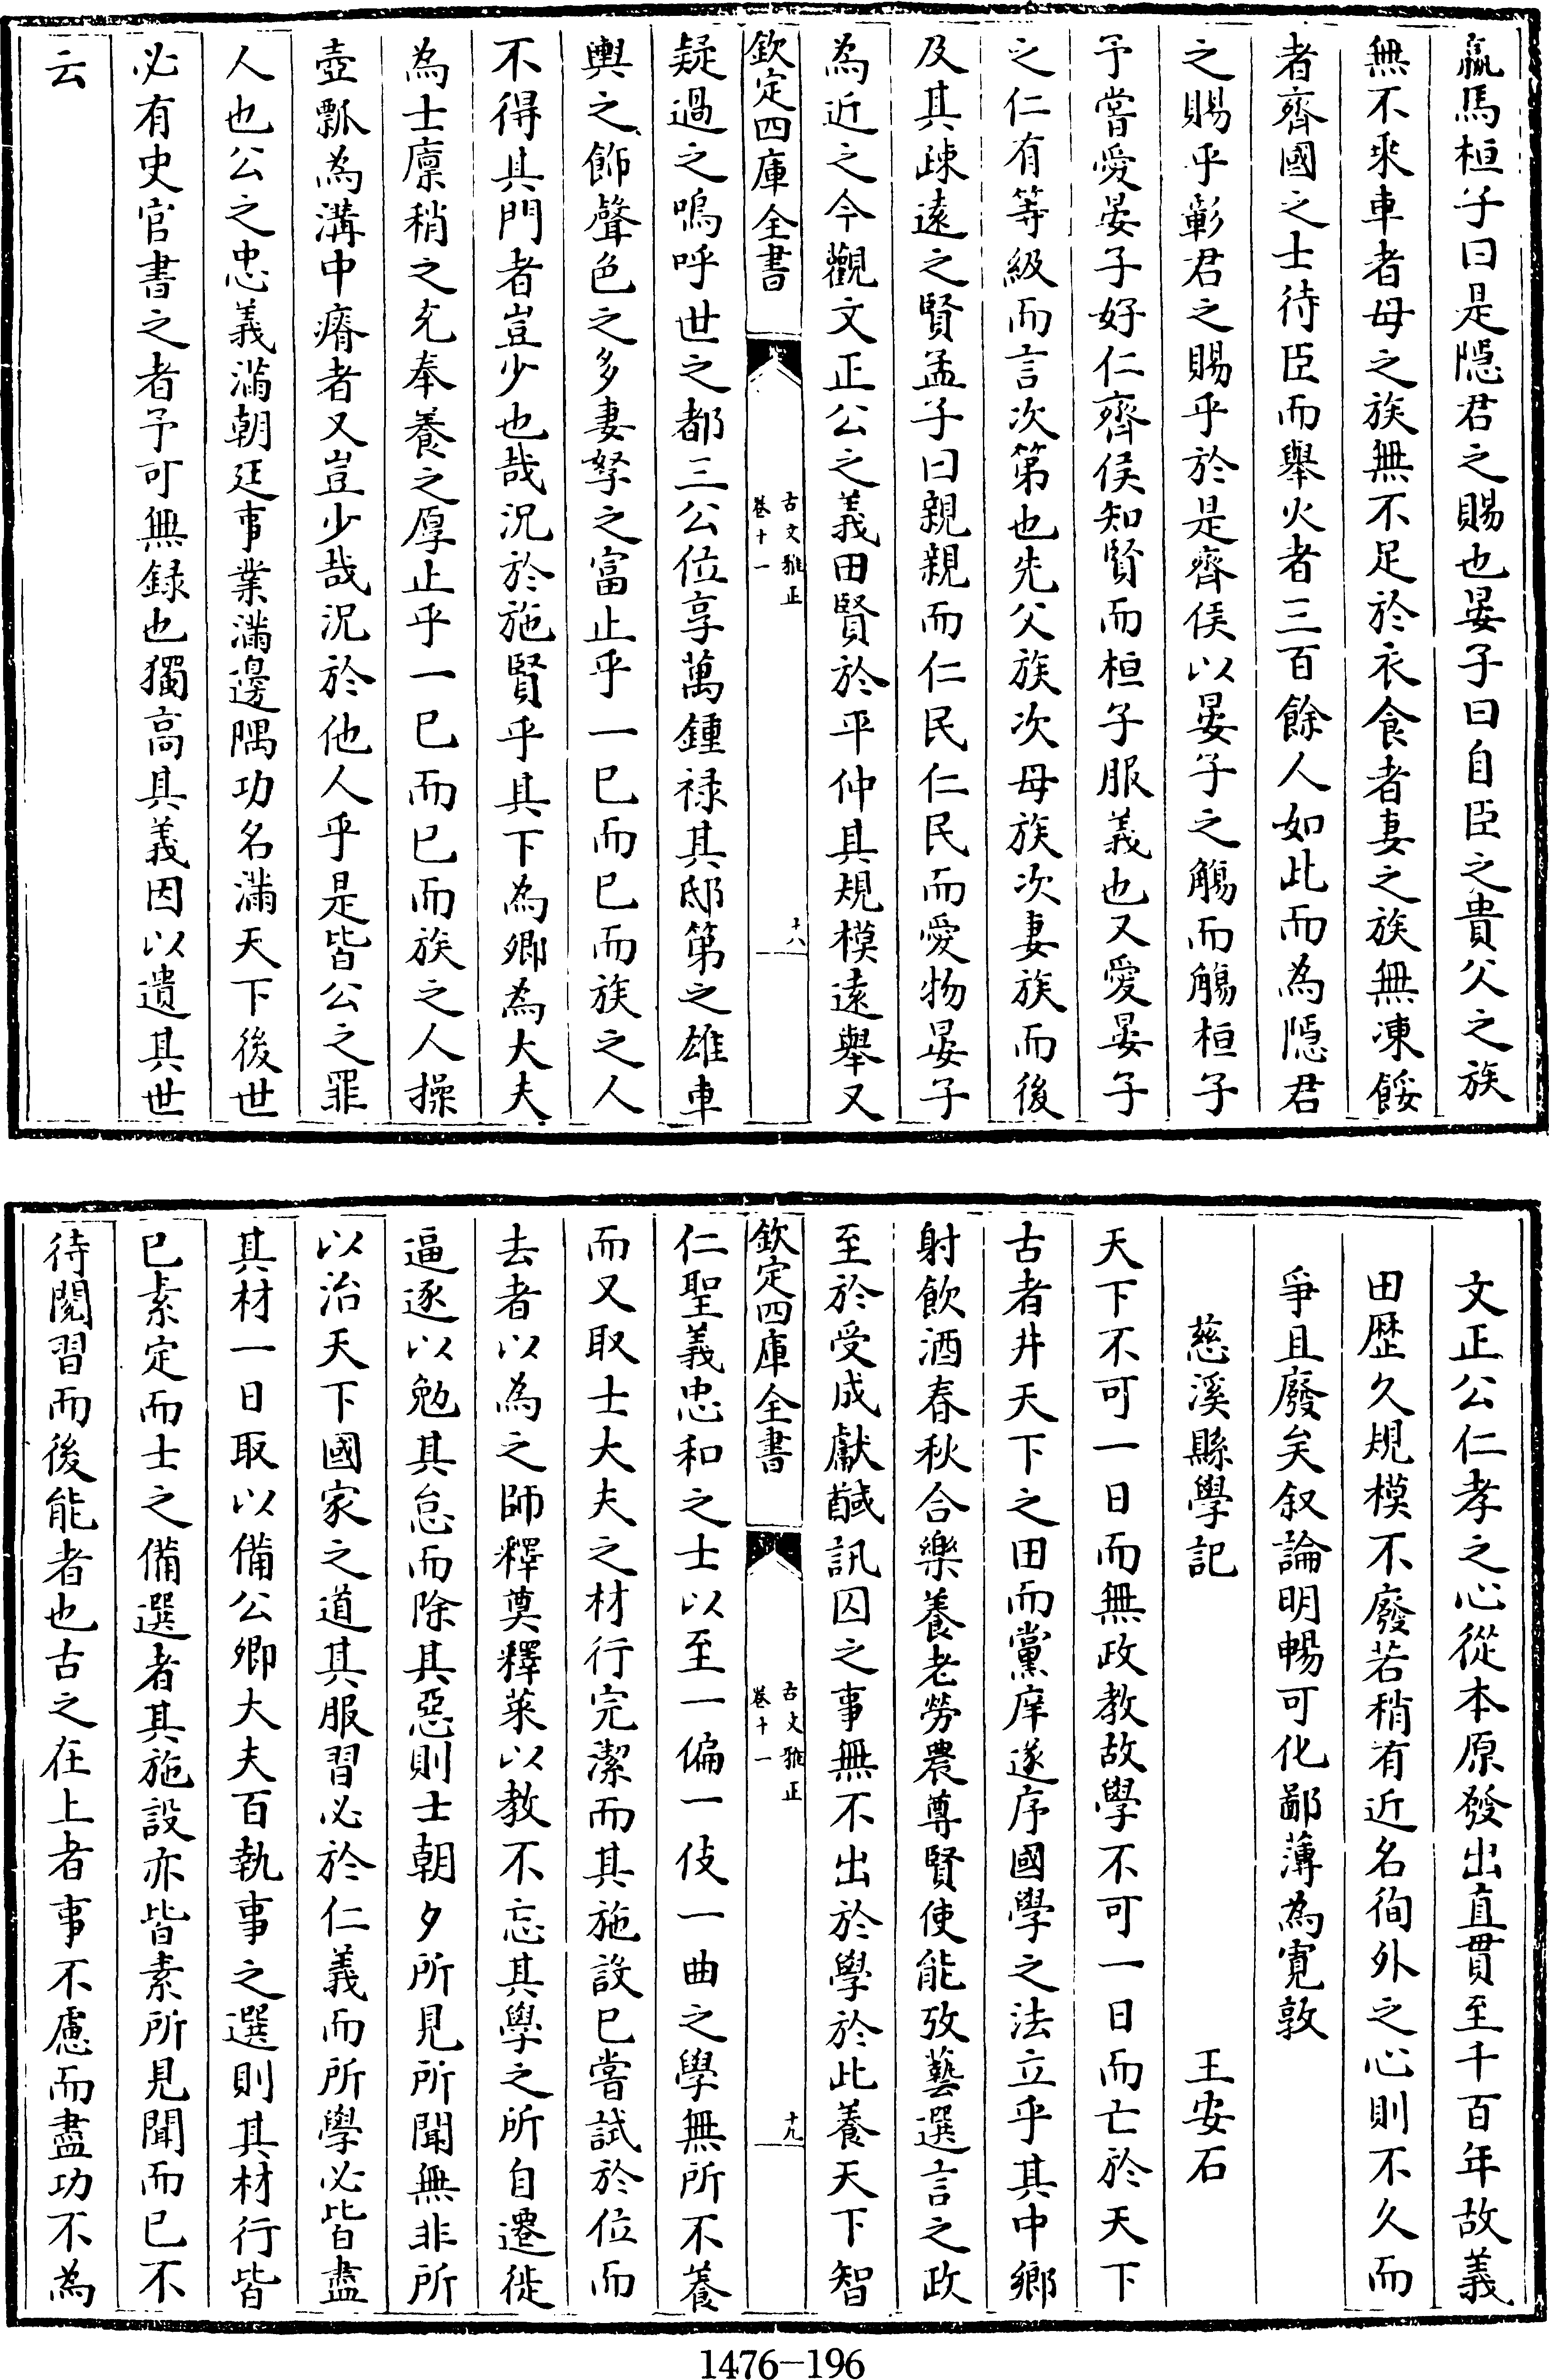 羸馬桓子曰是隠君之賜也晏子曰自臣之貴父之族
無不乘車者母之族無不足於衣食者妻之族無凍餒
者齊國之士待臣而舉火者三百餘人如此而為隠君
之賜乎彰君之賜乎於是齊侯以晏子之觴而觴桓子
予嘗愛晏子好仁齊侯知賢而桓子服義也又愛晏子
之仁有等級而言次第也先父族次母族次妻族而後
及其疎遠之賢孟子曰親親而仁民仁民而愛物晏子
為近之今觀文正公之義田賢於平仲其規模遠舉又
欽定四庫全書
古文雅正
卷十一
十八
疑過之嗚呼世之都三公位享萬鍾禄其邸第之雄車
輿之飾聲色之多妻孥之富止乎一已而已而族之人
不得其門者豈少也哉況於施賢乎其下為卿為大夫
為士廩稍之充奉養之厚止乎一已而已而族之人操
壺瓢為溝中瘠者又豈少哉況於他人乎是皆公之罪
人也公之忠義滿朝廷事業滿邊隅功名滿天下後世
必有史官書之者予可無録也獨高其義因以遺其世
云
文正公仁孝之心從本原發出直貫至千百年故義
田歴久規模不廢若稍有近名徇外之心則不久而
爭且廢矣叙論明暢可化鄙薄為寛敦
慈溪縣學記 王安石
天下不可一日而無政教故學不可一日而亡於天下
古者井天下之田而黨庠遂序國學之法立乎其中鄉
射飲酒春秋合樂養老勞農尊賢使能攷藝選言之政
至於受成獻馘訊囚之事無不出於學於此養天下智
欽定四庫全書
古文雅正
卷十一
十九
仁聖義忠和之士以至一偏一伎一曲之學無所不養
而又取士大夫之材行完潔而其施設已嘗試於位而
去者以為之師釋奠釋菜以教不忘其學之所自遷徙
逼逐以勉其怠而除其惡則士朝夕所見所聞無非所
以治天下國家之道其服習必於仁義而所學必皆盡
其材一日取以備公卿大夫百執事之選則其材行皆
已素定而士之備選者其施設亦皆素所見聞而已不
待閱習而後能者也古之在上者事不慮而盡功不為
1476-196